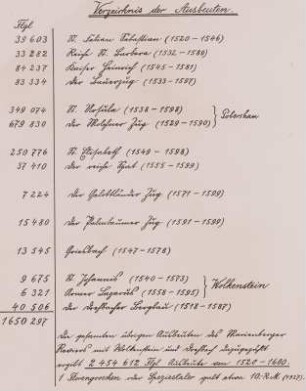 Verzeichnis der Ausbeuten
Flgl
39 603 St. Fabian Sebastian (1520-1546)
33 282 Reiche St. Barbara (1532-1580)
84 237 Kaiser Heinrich (1545-1581)
83 334 Der Bauerzug (1533-1587)
349 074 St. Ursula (1538-1598)
679 830 Der Molchner Zug (1529-1590)
250 776 St. Elisabeth (1549-1598)
37 410 Der reiche Spat (1555-1599)
7 224 Der Zug (1571-1589)
15 480 Der Palmbaumer Zug (1591-1599)
13 545 Griesbach (1547-1578)
9 675 St. Johannes (1540-1573) Wolkenstein
6 321 Armer Lazarus (1558-1595)
40 506 Der Drehbacher Bergbau (1518-1587)
1650 297
Die gesamten übrigen Ausbeuten des Marienberger
Reviers mit Wolkenstein und Drehbach
ergibt 2 459 612 Flgl Ausbeute von 1520-1600.
1 oder Speziestaler galt etwa 10.-R.M (1937).